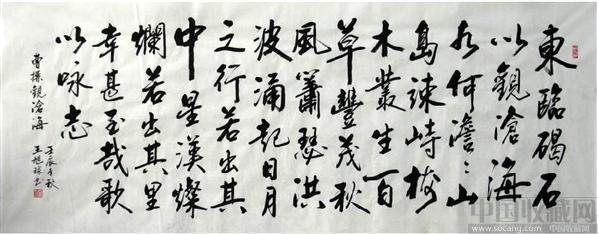 東臨碣石
以觀滄海
水何澹々山
島竦峙樹
木叢生百
草豐茂秋
風蕭瑟洪
波涌起日月
之行若出其
中星漢燦
爛若出其里
幸甚至哉歌
以咏志
曹操觀滄海
壬辰年秋
王旭 書
中国收藏网
www.socang.com